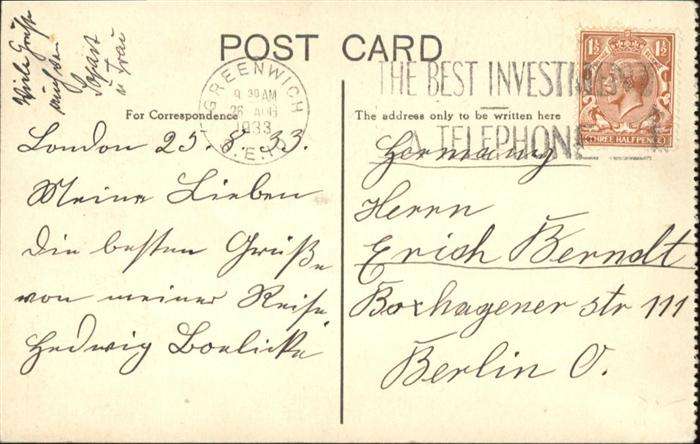 Viele Grüße
auch an
u Frau
POST CARD
GREENWICH
9 30 AM
26 AUG
1933
S.E.10
THE BEST INVESTMENT
A TELEPHONE
1½ 1½
THREE HALFPENCE
For Correspondence
The address only to be written here
London 25.8.33.
Meine Lieben
die besten Grüße
von meiner Reise
Hedwig Boelicke
Germany
Herrn
Erich Berndt
Boxhagener str 111
Berlin O.